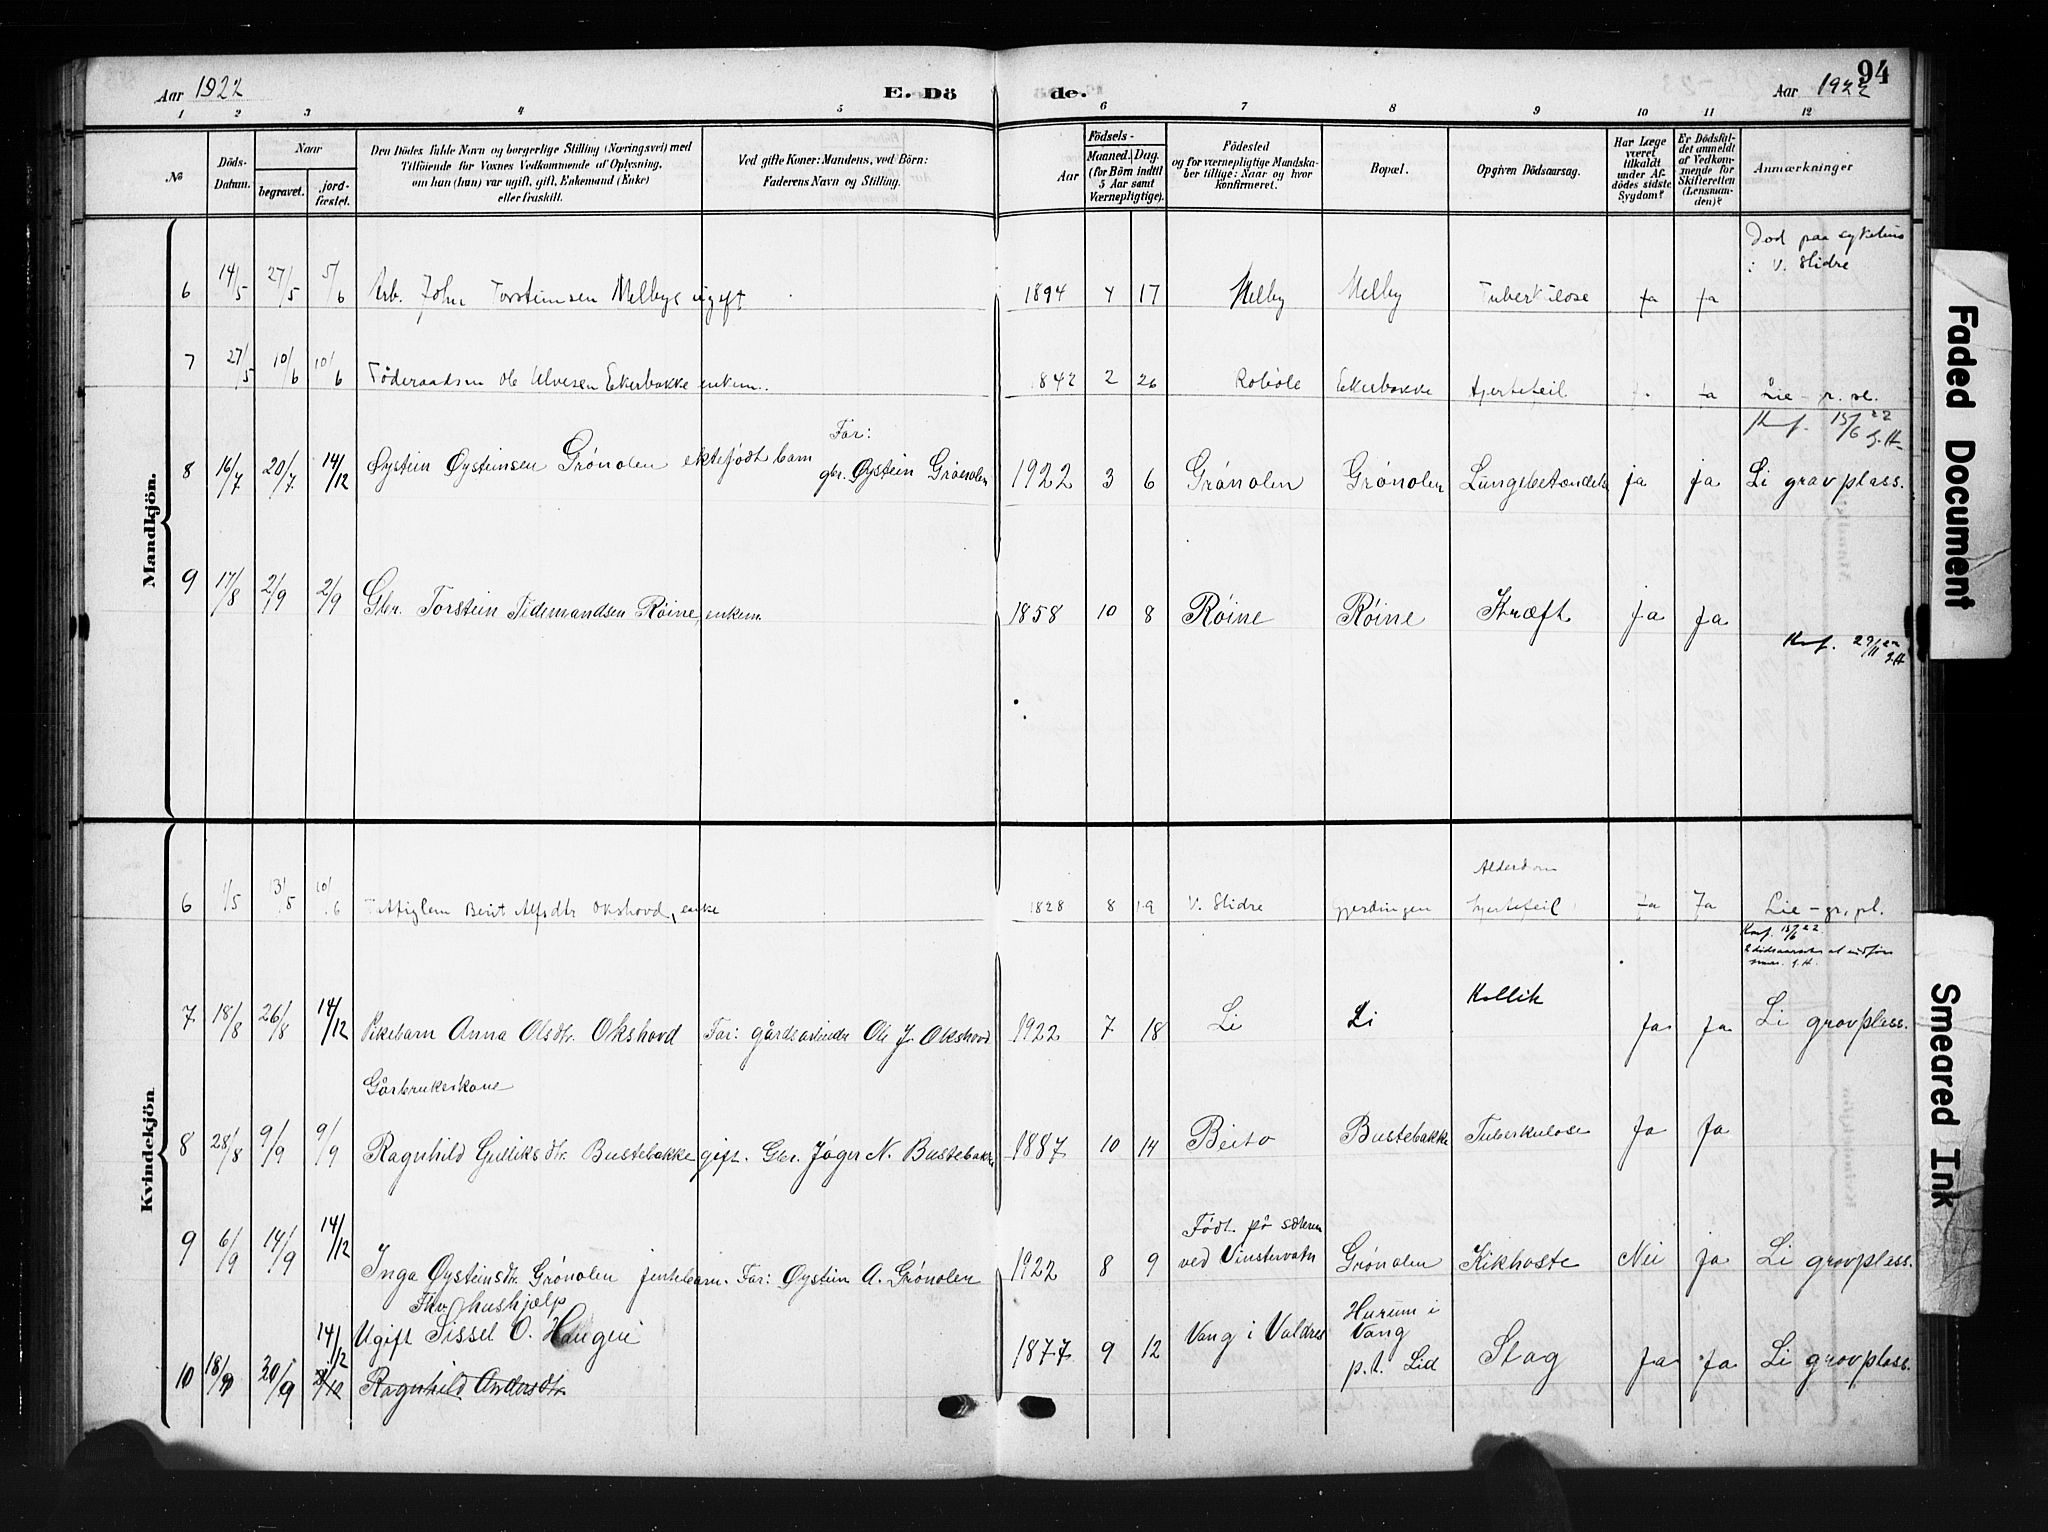 94
Aar 1922
E. Dö
de.
Aar 1922
1 2 3 4 5 6 7 8 9 10 11 12
№
Döds-
Datum.
Naar
begravet.
jord-
fæstet.
Den Dödes fulde Navn og borgerlige Stilling (Næringsvei) med
Tilföiende for Voxnes Vedkommende af Oplysning,
om han (hun) var ugift, gift, Enkemand (Enke)
eller fraskilt.
Ved gifte Koner: Mandens, ved Börn:
Faderens Navn og Stilling.
Födsels-
Aar
Maaned. Dag.
(for Börn indtil
5 Aar samt
Værnepligtige).
Födested
og for værnepligtige Mandska-
ber tillige: Naar og hvor
konfirmeret.
Bopæl.
Opgiven Dödsaarsag.
Har Læge
været
tilkaldt
under Af-
dödes sidste
Sygdom?
Er Dödsfal-
det anmeldt
af Vedkom-
mende for
Skifteretten
(Lensman-
den)?
Anmærkninger
Mandkjön.
Död paa sykehus
i V. Slidre
6 14/5 27/5 5/6 Arb. John Torsteinsen Melbye ugift 1894 4 17 Melby Melby Tuberkulose ja ja
7 27/5 10/6 10/6 Föderaadsm Ole Ulvesen Ekerbakke enkem. 1842 2 26 Robøle Ekerbakke Hjertefeil ja Lie - gr. pl.
Konf. 15/6 22 G.H.
Far:
8 16/7 20/7 14/12 Øystein Øysteinsen Grønolen ektefødt barn gbr. Øystein Grønolen 1922 3 6 Grønolen Grønolen Lungebetændels ja ja Li gravplass.
9 17/8 2/9 2/9 Gbr. Torstein Tidemandsen Röine, enkem. 1858 10 8 Röine Röine Kræft ja ja
Konf. 29/11 22 G.H.
Kvindekjön
Alderdom
6 1/5 13/5 10/6 Berit Alfsdtr Okshovd, enke 1828 8 19 V. Slidre Gjerdingen hjertefeil ja Ja Lie - gr. pl.
Konf. 15/6 22
G.H.
7 18/8 26/8 14/12 Pikebarn Anna Olsdtr. Okshovd Far: gårdsarbeider Ole J. Okshovd 1922 7 18 Li Li Kollik ja ja Li gravplass.
Gårbrukerkone
8 28/8 9/9 9/9 Ragnhild Gulliksdtr. Bustebakke gift. Gbr. Jøger N. Bustebakke 1887 10 14 Beito Bustebakke Tuberkulose Ja Ja
Født på sæteren
9 6/9 14/9 14/12 Inga Øysteinsdtr. Grønolen jentebarn. Far: Øystein A. Grønolen 1922 8 9 ved Vinstervatn Grønolen Kikhoste Nei ja Li gravplass.
Fhv. hushjælp
14/12 Ugift Sissel O. Haugen
10 18/9 30/9 Ragnhild Andersdtr. 1877 9 12 Vang i Valdres Hurum i
Vang
p.t. Lid Slag Ja Ja Li gravplass.
Faded Document
Smeared Ink